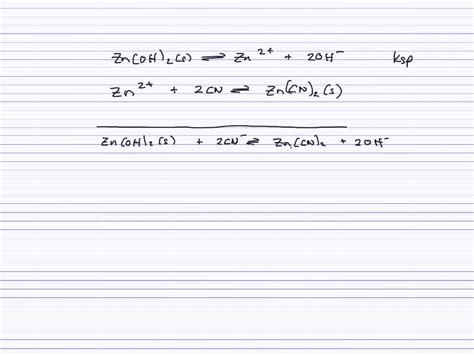 Zn(OH)₂(s) ⇌ Zn²⁺ + 2OH⁻ ksp
Zn²⁺ + 2CN ⇌ Zn(CN)₂(s)
Zn(OH)₂(s) + 2CN⁻ ⇌ Zn(CN)₂ + 2OH⁻